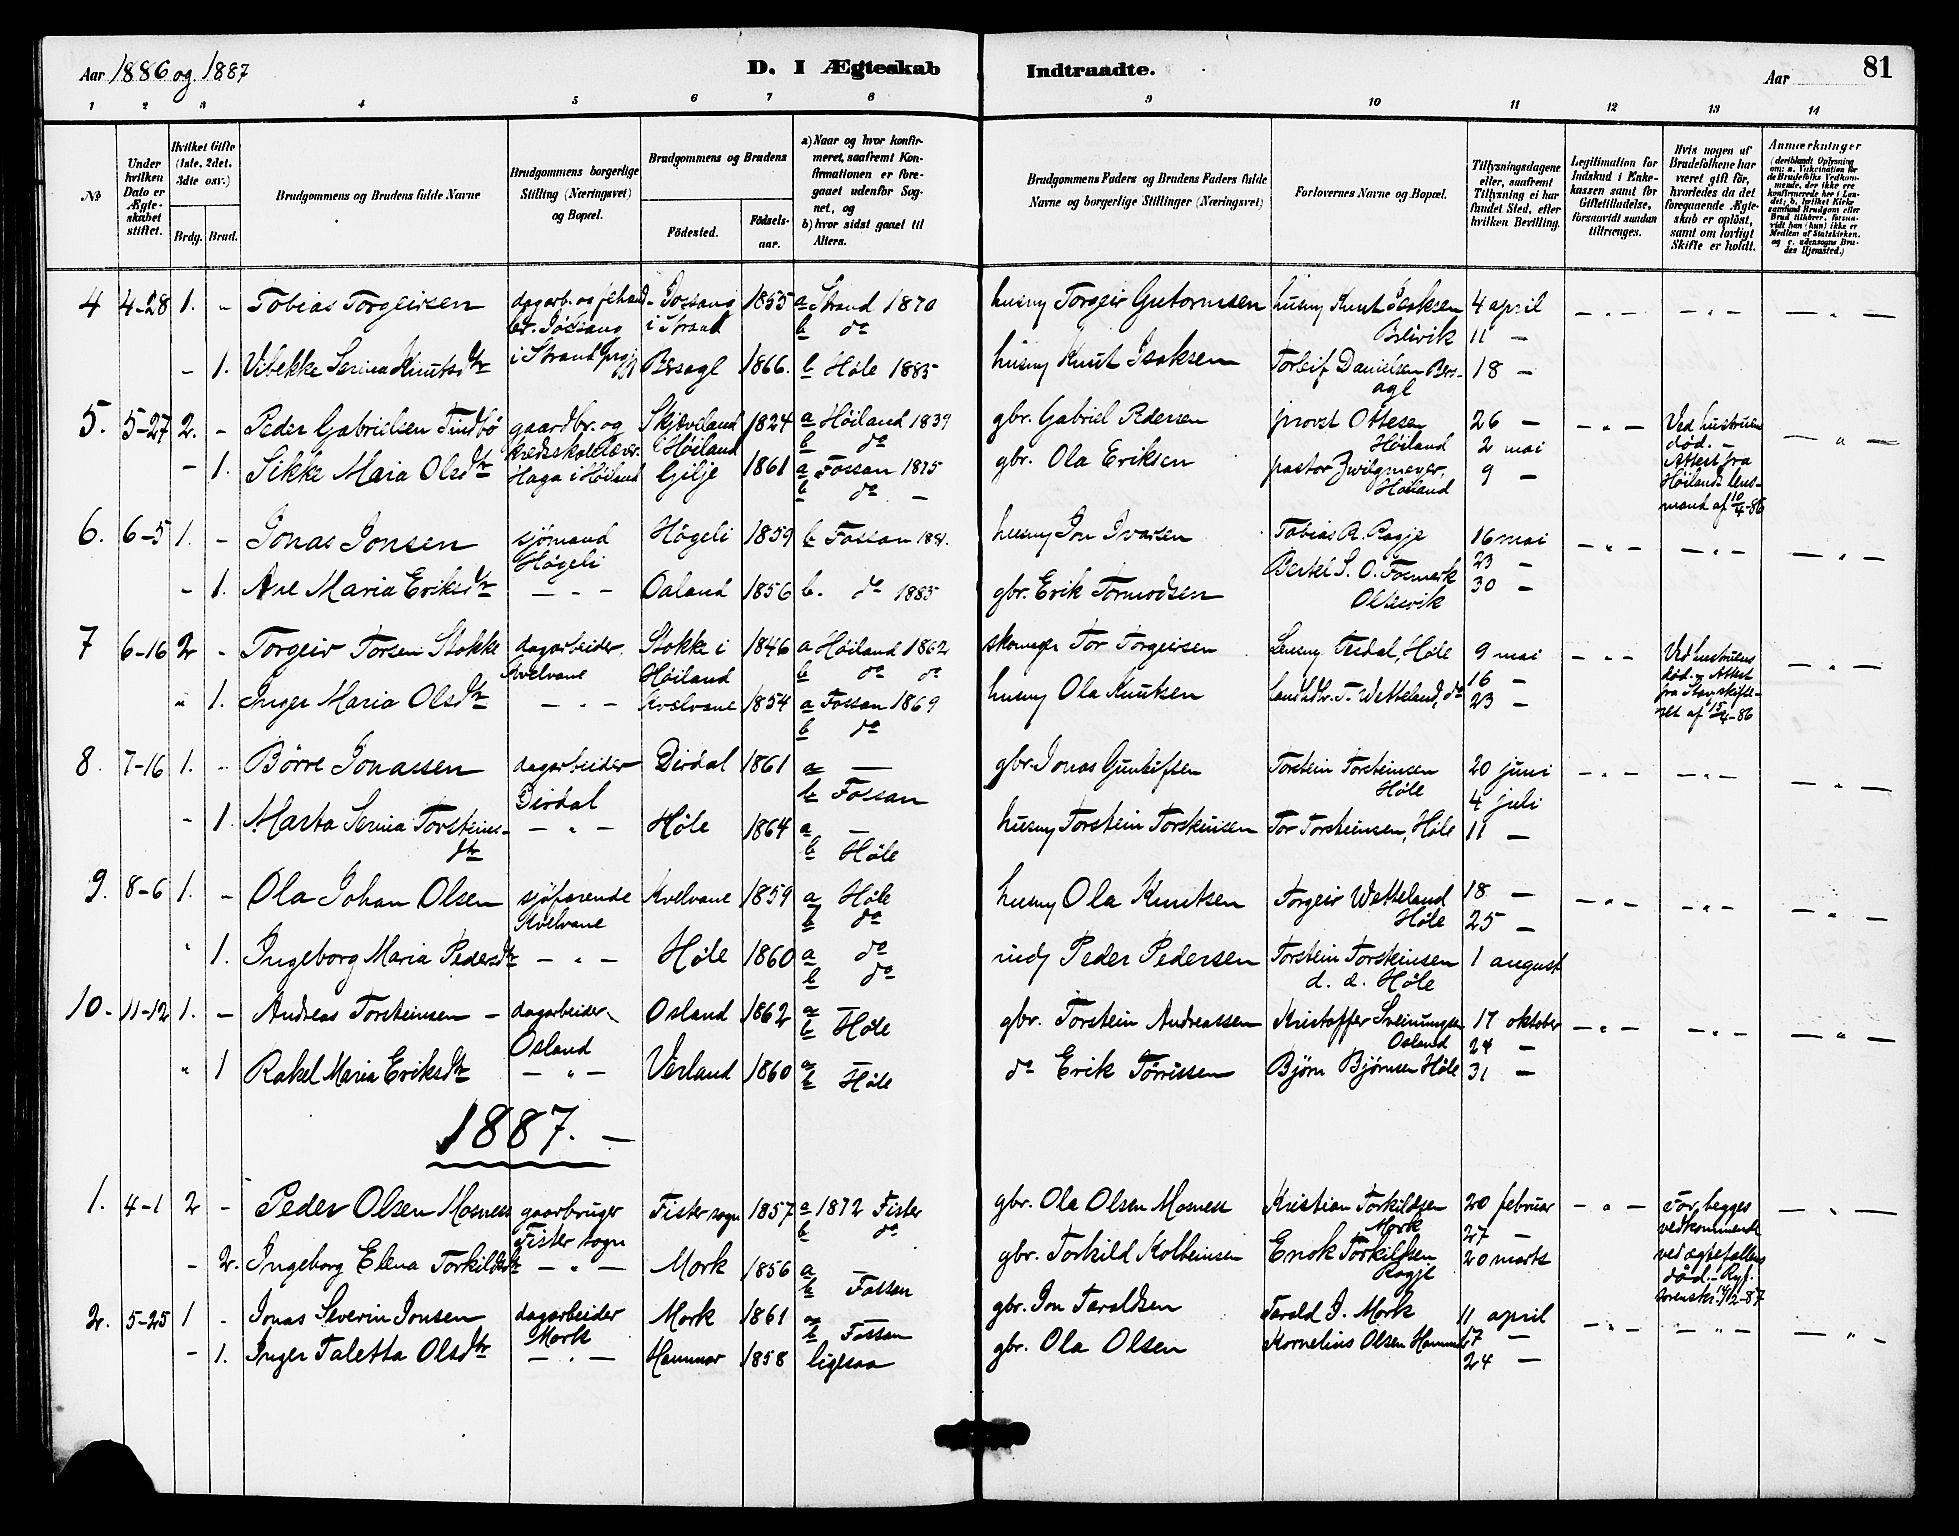 Aar 1886 og 1887
D. I Ægteskab Indtraadte.
Aar
81
1 2 3 4 5 6 7 8 9 10 11 12 13 14
№
Under hvilken Dato er Ægteskabet stiftet.
Hvilket Gifte (1ste, 2det, 3die osv.)
Brdg. Brud.
Brudgommens og Brudens fulde Navne
Brudgommens borgerlige Stilling (Næringsvei) og Bopæl.
Brudgommens og Brudens
Fødested.
Fødselsaar.
a) Naar og hvor konfirmeret, saafremt Konfirmationen er foregaaet udenfor Sognet, og
b) hvor sidst gaaet til Alters.
Brudgommens Faders og Brudens Faders fulde Navne og borgerlige Stillinger (Næringsvei)
Forlovernes Navne og Bopæl.
Tillysningsdagene eller, saafremt Tillysning ei har fundet Sted, efter hvilken Bevilling.
Legitimation for Indskud i Enkekassen samt for Giftetilladelse, forsaavidt saadan tiltrænges.
Hvis nogen af Brudefolkene har været gift før, hvorledes da det foregaaende Ægteskab er opløst, samt om lovligt Skifte er holdt.
Anmærkninger
4 4-28 1. - Tobias Torgeirsen dagarb. og Jøssang 1855 a Strand 1870 husmd Torgeir Gutormsen husmd Knut Isaksen 4 april
br. Jøssang i Strand b do Brevik 11 -
- 1. Vibekke Serina Knutsdtr i Strand Bersagl 1866. b Høle 1885 husmd Knut Isaksen Torleif Danielsen Bersagl 18 -
5. 5-27 2. - Peder Gabrielsen Tindbø gaardbr. og Skjæveland 1824 a Høiland 1839 gbr. Gabriel Pedersen provst Ottesen 26 - Ved hustruens
kredsskolelærer i Høiland b do Høiland 2 mai død. -
- 1. Sikke Maria Olsdtr Haga i Høiland Gilje 1861 a Fossan 1875 gbr. Ola Eriksen pastor Zwilgmeyer, 9 - Attest fra
b do - Høiland Høilands lensmand af 10/4-86
6. 6-5 1. - Jonas Jonsen sjømand Høgeli 1859 b Fossan 1881. husmd Jon Ivarsen Tobias R. Ragje 16 mai
Høgeli Bertel S. O. Fosmark 23 -
- 1. Ane Maria Eriksdtr - " - Osland 1856 b. do 1885 gbr. Erik Tormodsen Oltesvik 30 -
7 6-16 2 - Torgeir Torsen Stokke dagarbeider, Stokke i 1846 a Høiland 1862 skomager Tor Torgeirsen Lensm Tesdal, Høle 9 mai Ved hustruens
Kvelvane Høiland b do do 16 - død. - Attest
" 1. Inger Maria Olsdtr - " - Kvelvane 1854 a Fossan 1869 husmd Ola Knutsen Landhdlr. T. Wetteland, do 23 - fra Stav. skifte-
b do ret af 15/4-86
8. 7-16 1. - Børre Jonassen dagarbeider Dirdal 1861 a - gbr. Jonas Gunleifsen Torstein Torsteinsen 20 juni
Dirdal b Fossan Høle 4 juli
- 1 Marta Serina Torsteinsdtr - " - Høle 1864 a - husmd Torstein Torsteinsen Tor Torsteinsen, Høle 11 -
b Høle
9. 8-6 1. - Ola Johan Olsen sjøfarende Kvelvane 1859 a Høle husmd Ola Knutsen Torgeir Wetteland 18 -
Kvelvane b do Høle 25 -
" 1. Ingeborg Maria Pedersdtr - " - Høle 1860 a do Peder Pedersen Torstein Torsteinsen 1 august
b do d. d. Høle
10. 11-12 1. - Andreas Torsteinsen - dagarbeider Osland 1862 a - gbr. Torstein Andreassen Kristoffer Sveinungsen 17 oktober
Osland b Høle Osland 24 -
" 1 Rakel Maria Eriksdtr - " - Verland 1860 a - do Erik Tørrissen Bjørn Bjørnsen Høle 31 -
b Høle
1887. -
1. 4-1 2 - Peder Olsen Mosness gaarbruger Fister sogn 1857 a 1872 Fister gbr. Ola Olsen Mosness Kristian Torkildsen 20 februar For begges
Fister sogn b do Mork 27 - vedkommende
- 2. Ingeborg Elena Torkildsdtr - " - Mork 1856 a - gbr. Torkild Kolbeinsen Enok Torkildsen 20 marts ved ægtefællens
b Fossan Ragje død. - Ryf.
2. 5-25 1 - Jonas Severin Jonsen dagarbeider Mork 1861 a - gbr. Jon Taraldsen Tarald J. Mork 11 april
Mork b Fossan 17 -
- 1. Inger Taletta Olsdtr - " - Hammar 1858 ligesaa gbr. Ola Olsen Kornelius Olsen Hammar 24 -